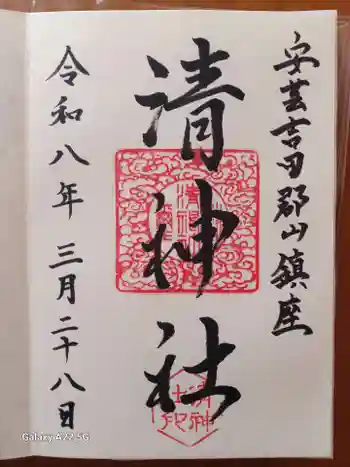 安芸吉田郡山鎮座
清神社
清神社
令和八年三月二十八日
Galaxy A22 5G